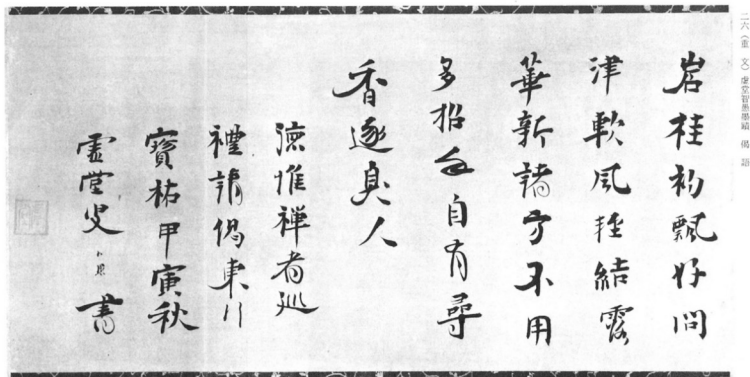 二六（重文）虛堂智愚墨蹟 偈語
岩桂初飄好問
津軟風輕結露
華新諸方不用
多招手自有尋
香逐臭人
德惟禪者巡
禮請偈東行
寶祐甲寅秋
虛堂叟書